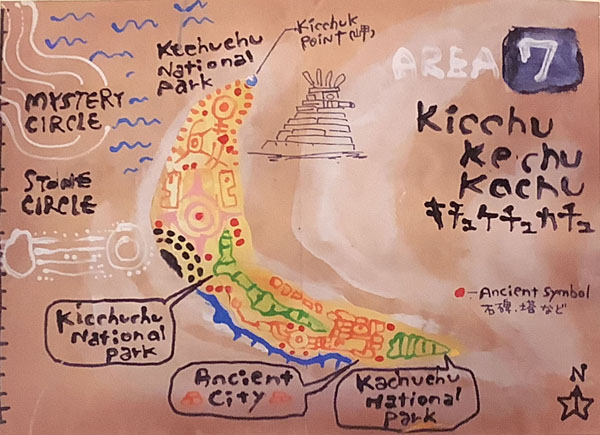 Kechuchu
National
Park
Kicchuk
Point (岬)
AREA 7
MYSTERY
CIRCLE
Kicchu
Kechu
Kachu
キチュケチュカチュ
STONE
CIRCLE
Ancient Symbol
石碑、塔など
Kicchuchu
National
Park
Ancient
City
Kachuchu
National
Park
N